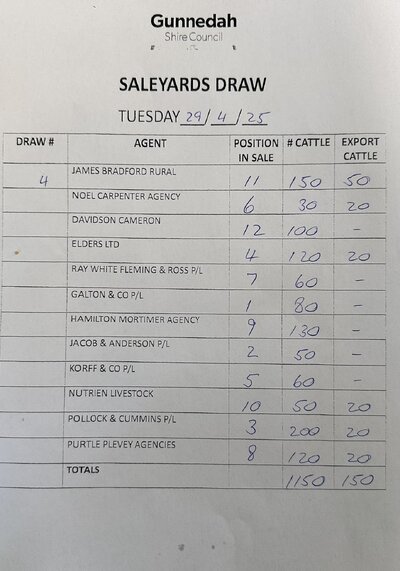 Gunnedah
Shire Council
SALEYARDS DRAW
TUESDAY 29/4/25
DRAW # AGENT POSITION IN SALE # CATTLE EXPORT CATTLE
4 JAMES BRADFORD RURAL 11 150 50
NOEL CARPENTER AGENCY 6 30 20
DAVIDSON CAMERON 12 100 -
ELDERS LTD 4 120 20
RAY WHITE FLEMING & ROSS P/L 7 60 -
GALTON & CO P/L 1 80 -
HAMILTON MORTIMER AGENCY 9 130 -
JACOB & ANDERSON P/L 2 50 -
KORFF & CO P/L 5 60 -
NUTRIEN LIVESTOCK 10 50 20
POLLOCK & CUMMINS P/L 3 200 20
PURTLE PLEVEY AGENCIES 8 120 20
TOTALS 1150 150